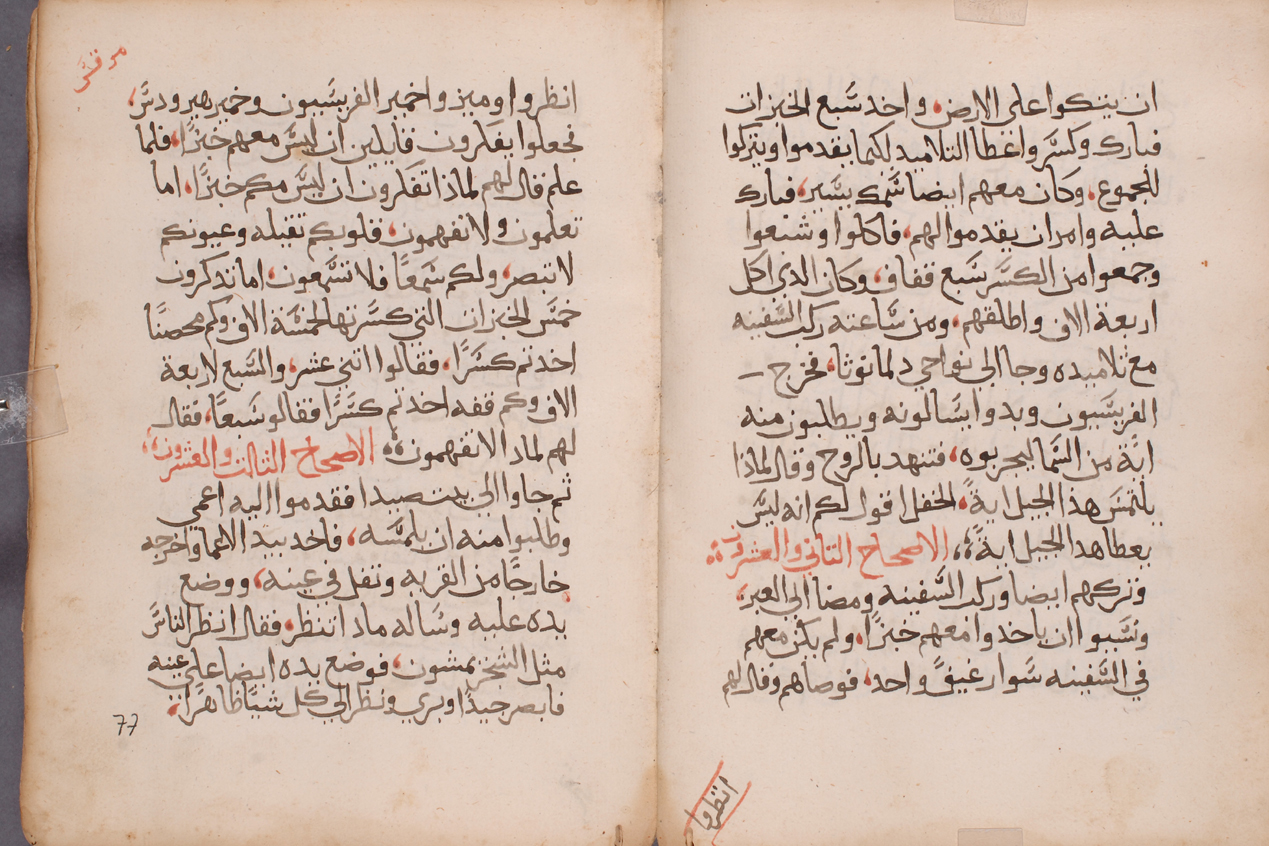 ان يتكوا على الارض، واخد سَبع الخبزات
فبارك وكسَّر واعَطا التلاميد لكيما يقدموا ويتركوا
للجموع، وكان معهم ايضا سَمك يسَير، فبارك
عليه وامر ان يقدموا لهم، فاكلوا وشبعوا
وجمعوا من الكسَر سَبع قفاف، وكان الدي اكل
اربعة الاف واطلقهم، ومن سَاعته ركب السَفينه
مع تلاميده وجا الي نواحي دلمانوثا، فخرج
الفريسَيون وبدوا يسَالونه ويطلبون منه
ايَة من السَما ليجربوه، فتنهد بالروح وقال لماذا
يلتمسَ هذا الجيل ايةً، الحق اقول لكم انه ليسَ
يعطا هدا الجيل ايةً، الاصحاح التاني والعشرون
وتركهم ايضا وركب السَفينه ومضا الي العبر،
ونسَيوا ان ياخدوا معهم خبزًا، ولم يكن معهم
في السَفينه سَوا رغيفً واحد، فوصاهم وقال لهم
انظروا
مرقسَ
انظروا وميزوا خمير الفريسَيون وخمير هيرودسَ،
فجعلوا يفكرون قايلين ان ليسَ معهم خبزًا، فلما
علم قال لهم لماذا تفكرون ان ليسَ معكم خبزًا، اما
تعلمون ولا تفهمون، قلوبكم تقيله وعيونكم
لا تبصر، ولكم سَمعًا فلا تسَمعون، اما تدكرون
خمسَ الخبزات التي كسَرتها لخمسَة الاف وكم محصنًا
اخدتم كسَرًا، فقالوا اتني عشر، والسَبع لاربعة
الاف وكم قفه اخدتم كسَرًا فقالو سَبعًا، فقال
لهم لماد الا تفهمون، الاصحاح الثالت والعشرون
ثم جاوا الي بيت صيدا فقدموا اليه اعمي
وطلبوا منه ان يلمسَه، فاخد بيد الاعما واخرجه
خارجًا من القريه وتفل في عينيه، ووضع
يده عليه وسَاله مادا تنظر، فقال انظر الناسَ
مثل الشجر يمشون، فوضع يده ايضا علي عينيه
فابصر جيدًا وبري ونظر الي كل شيًا ظاهرًا،
77